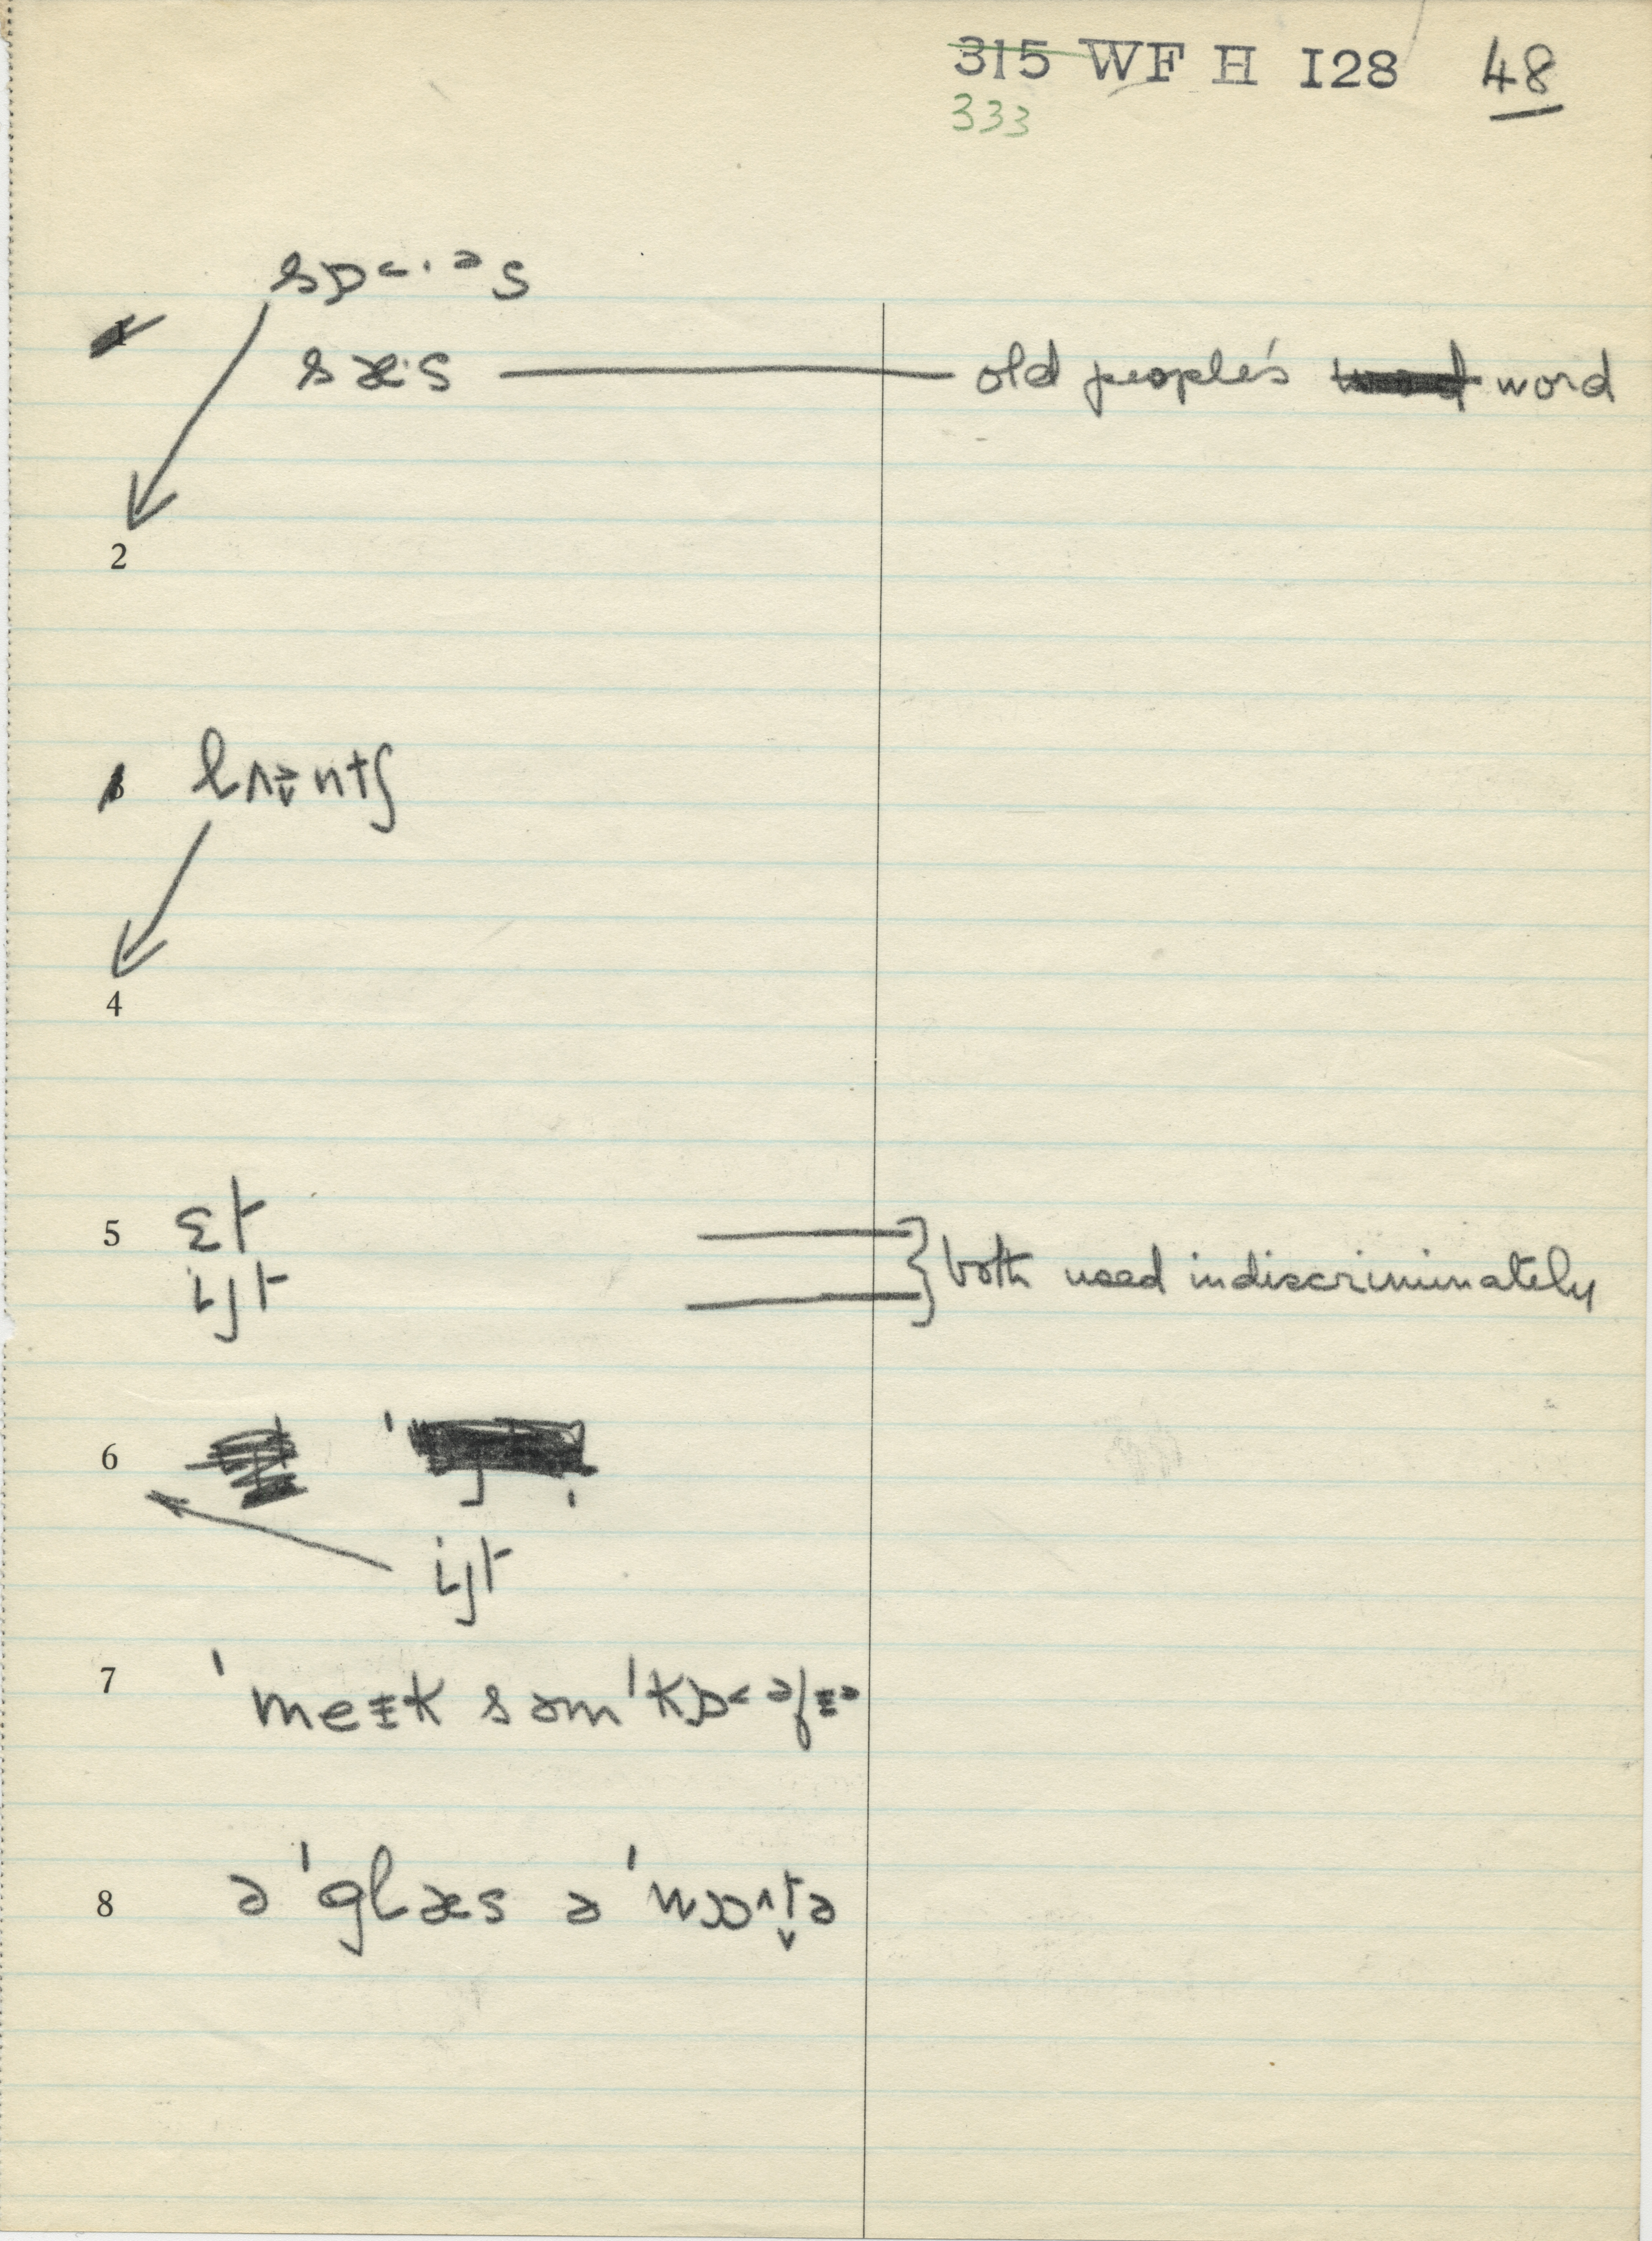 315 WF H I28 48
333
sɒ˂·ᵊs
1
sæ·s old people's word
2
3 lʌɪ̞ntʃ
4
5 ɛt
ijt both used indiscriminately
6
ijt
7 ˈmeɪk səmˈkɒ˂əfɪə
8 əˈglæs əˈwɔt̬ə